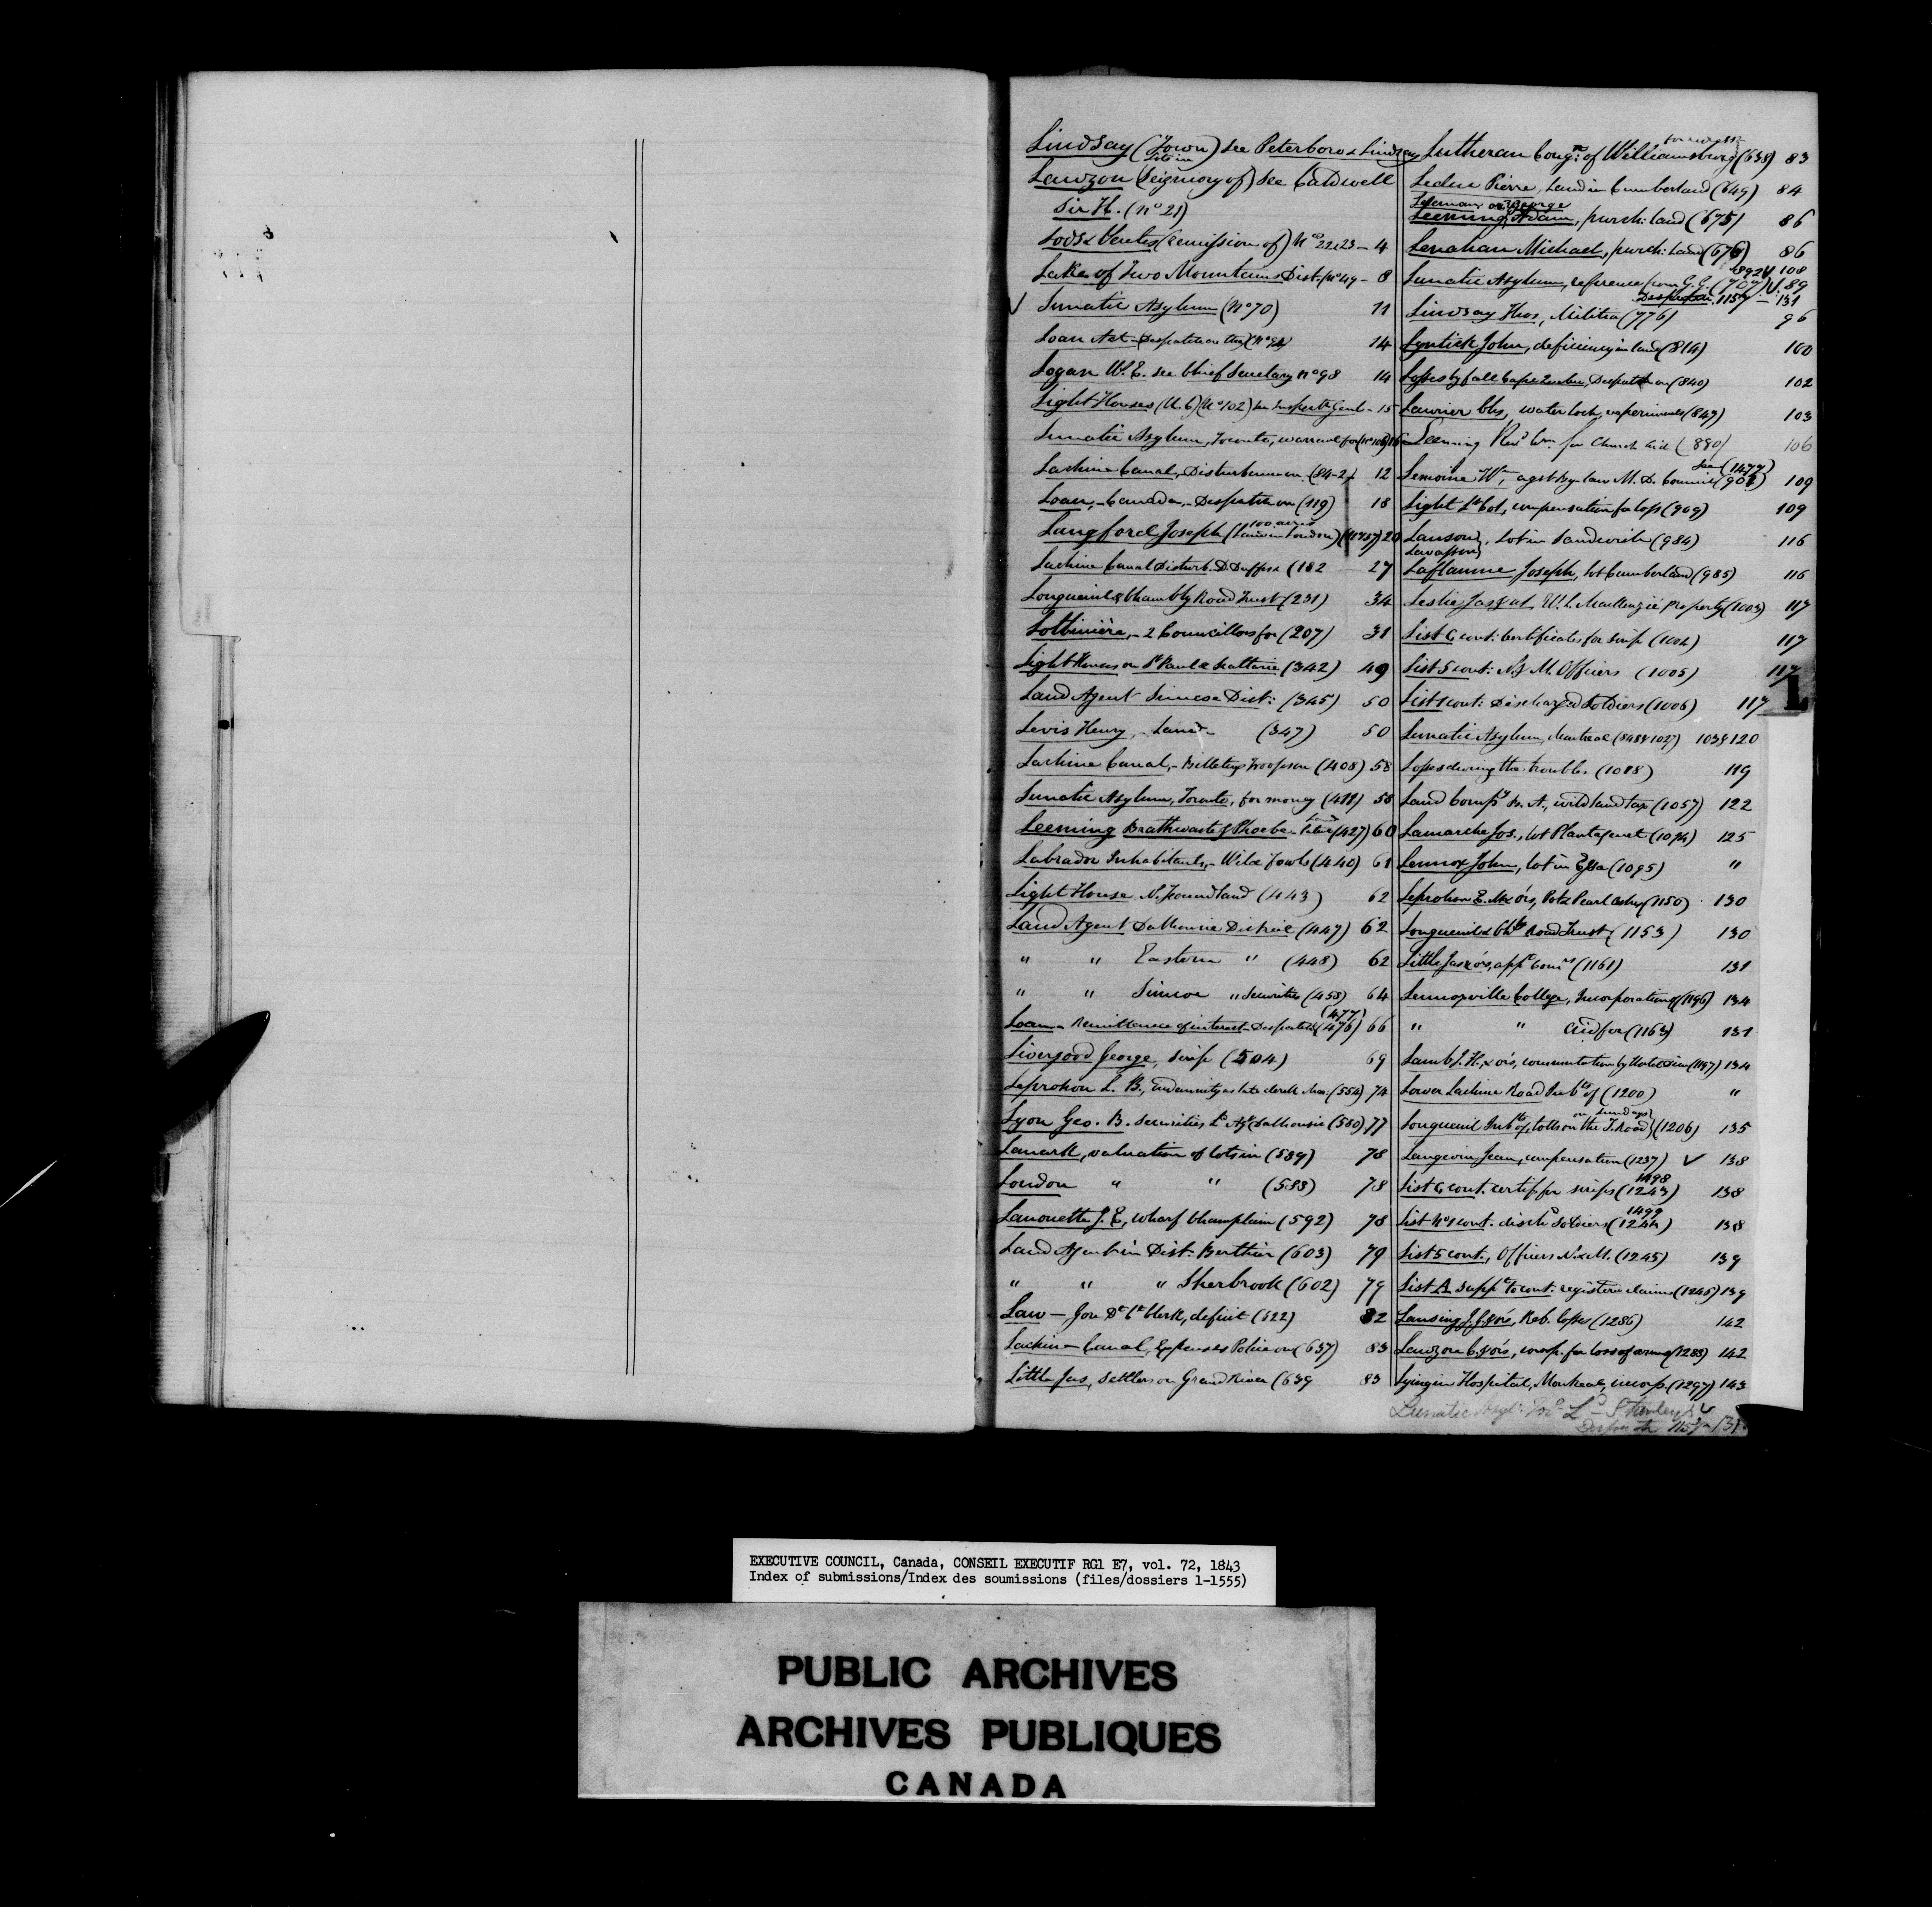 Lindsay (Town) see Peterboro & Lindsay
Lots in
Lauzon (Seigniory of) see Caldwell
Sir H. (No 21)
Lods & Ventes (remission of) Nos 22 & 23 - 4
Lake of Two Mountains Dist. (No 49 - 8
✓ Lunatic Asylum (No 70) 11
Loan Act - Despatch on the (No 94) 14
Logan W. E. see Chief Secretary No 98 14
Light Houses (U.C) (No 102) see Inspectr Genl - 15
Lunatic Asylum, Toronto, warrant for (No 106) 16
Lachine Canal, Disturbance on (84-2) 12
Loan, - Canada, - Despatch on (119) 18
100 acres
Langford Joseph (Land in London) 20
Lachine Canal Disturb. (182 27
Longueuil & Chambly Road Trust (231) 34
Lotbinière, - 2 Councillors for (207) 31
Light Houses on St Paul & Scatterie (342) 49
Land Agent Simcoe Dist: (345) 50
Levis Henry, - Land - (347) 50
Lachine Canal, - Billeting Troops on (408) 58
Lunatic Asylum, Toronto, for money (411) 58
Leeming Brathwaite & Phoebe - (427) 60
Labrador Inhabitants, - Wild Fowls (440) 61
Light House N. foundland (443) 62
Land Agent Dalhousie District (447) 62
" " Eastern " (448) 62
" " Simcoe " Securities (458) 64
(477)
Loan - Remittance of interest - Despatch (476) 66
Livergood George, Scrip (504) 69
Leprohon L. B., Indemnity as late clerk (554) 74
Lyon Geo. B. securities Ld Agt Dalhousie (580) 77
Lanark, valuation of lots in (589) 78
London " " (588) 78
Lanouette J. E, wharf Champlain (592) 78
Land Agent in Dist. Berthier (603) 79
" " " Sherbrook (602) 79
Law - Ct Clerk, deficit (622) 82
Lachine Canal, Expenses Police on (637) 83
Little Jas, Settlers on Grand River (639 83
Lutheran Congn: of Williamsburg (638) 83
Leduc Pierre, Land in Cumberland (649) 84
or George
Leeming Adam, purch: land (675) 86
Lenahan Michael, purch: Land (676) 86
892 ✓ 108
Lunatic Asylum, reference from G. G. ✓ 89
Despatch 1157 - 131
Lindsay Thos, Militia (776) 96
Lyntick John, deficiency in land (814) 100
Losses by fall Cape Quebec, Despatch on (840) 102
Laurier Chs, water lock, experiments (847) 103
Leeming Revd Wm for Church Aid (880) 106
See (1477)
Lemoine Wm, agst by-law M. D. Council 109
Light Lt Col, compensation for loss (909) 109
Lanson, Lot in Sandwich (984) 116
Lavasson
Laflamme Joseph, lot Cumberland (985) 116
Leslie Jas & al, W. L. MacKenzie property (1003) 117
List 6 cont: Certificates for scrip (1004) 117
List 5 cont: N & M. Officers (1005) 117
L
List 1 cont: Discharged Soldiers (1006) 117
Lunatic Asylum, Montreal (848 & 1027) 103 & 120
Losses during the troubles (1018) 119
Land Compy B. A., wild land tax (1057) 122
Lamarche Jos., lot Plantagenet (1094) 125
Lennox John, lot in Essa (1095) "
Leprohon E. M. & ors, Pot & Pearl Ashes (1150) 130
Longueuil & Chbly Road Trust (1153) 130
Little Jas & ors, appt Comrs (1161) 131
Lennoxville College, Incorporation of (1196) 134
" " Aid for (1163) 131
Lamb J. H. & ors, commutation by (1197) 134
Lower Lachine Road Inhbts of (1200) "
on Sundays
Longueuil Inhbts of, tolls on the T. Road (1206) 135
Langevin Jean, compensation (1237) ✓ 138
1498
List 6 cont. certif. for scrips (1243) 138
1499
List No 1 cont. dischd Soldiers (1244) 138
List 5 cont., Officers N & M. (1245) 139
List A suppt to cont: register claims (1246) 139
Lansing J. J. & ors, Reb. losses (1286) 142
Lauzon C. & ors, comp. for loss of arms (1288) 142
Lying in Hospital, Montreal, incorp. (1297) 143
Lunatic Asylm Ld Stanley's
Despatch 1157 - 131
EXECUTIVE COUNCIL, Canada, CONSEIL EXECUTIF RG1 E7, vol. 72, 1843
Index of submissions/Index des soumissions (files/dossiers 1-1555)
PUBLIC ARCHIVES
ARCHIVES PUBLIQUES
CANADA